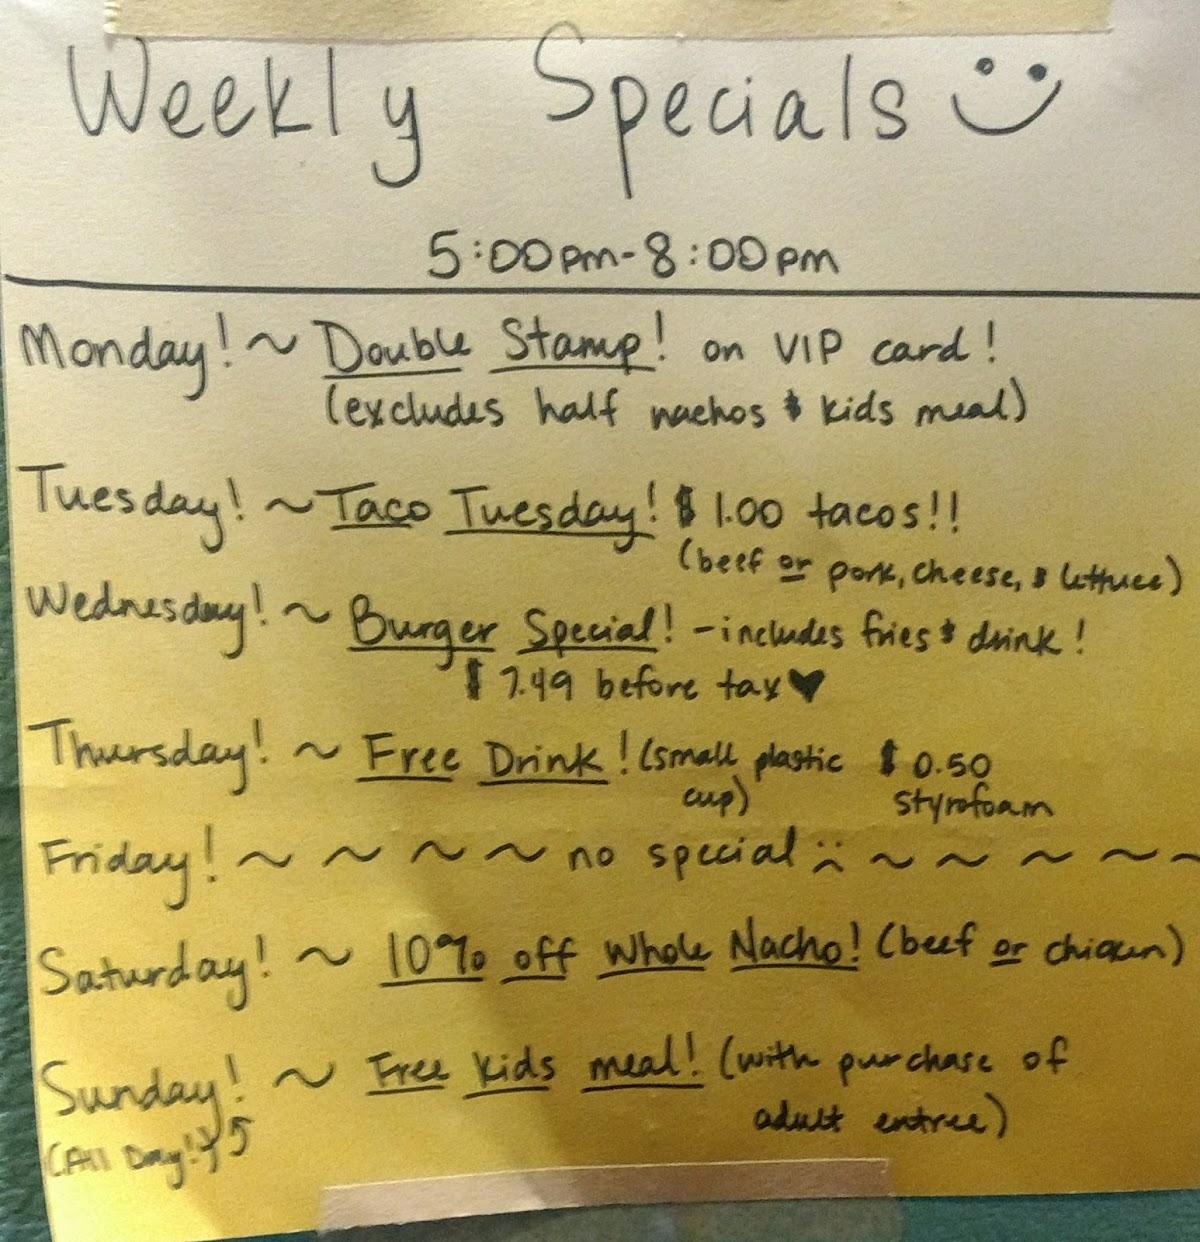 Weekly Specials
5:00pm-8:00pm
Monday! ~ Double Stamp! on VIP card!
(excludes half nachos & kids meal)
Tuesday! ~ Taco Tuesday! $1.00 tacos!!
(beef or pork, cheese, & lettuce)
Wednesday! ~ Burger Special! - includes fries & drink!
$7.49 before tax ♥
Thursday! ~ Free Drink! (small plastic $0.50
cup) styrofoam
Friday! ~ ~ ~ ~ no special :( ~ ~ ~ ~ ~
Saturday! ~ 10% off Whole Nacho! (beef or chicken)
Sunday! ~ Free kids meal! (with purchase of
adult entree)
(All Day!)